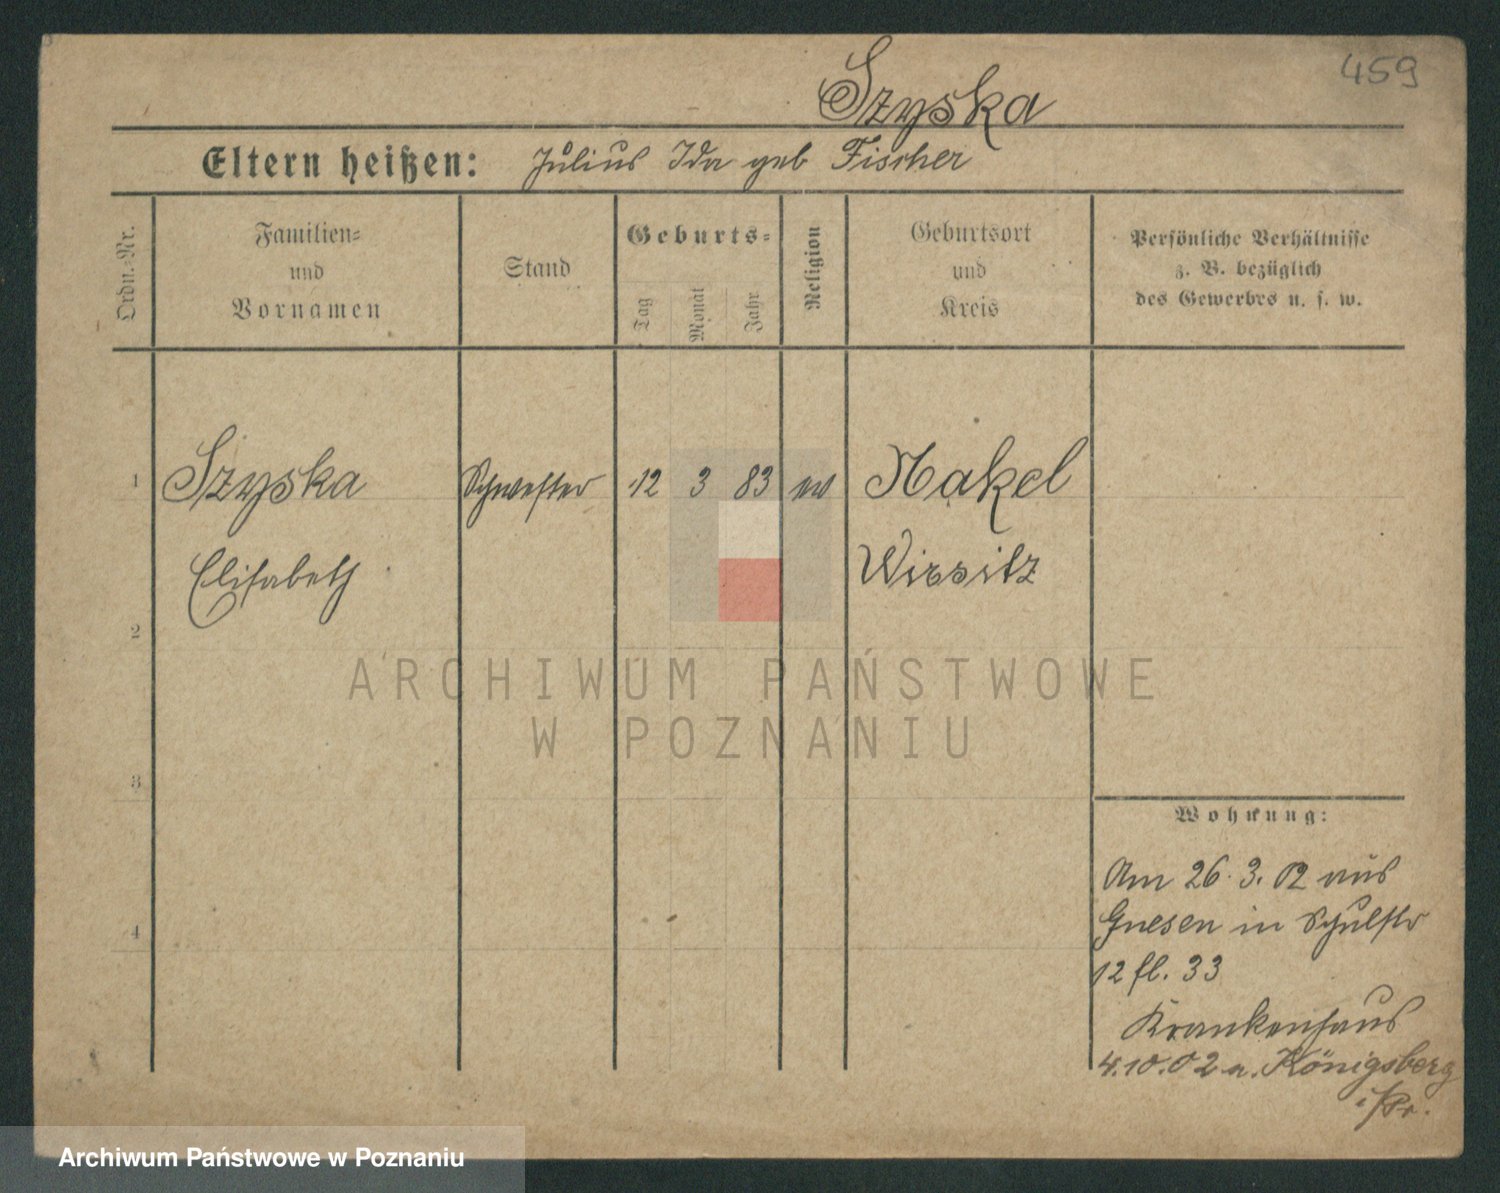 459
Szyska
Eltern heißen: Julius Ida geb Fischer
Ordn.-Nr.
Familien-
und
Vornamen
Stand
Geburts-
Tag
Monat
Jahr
Religion
Geburtsort
und
Kreis
Persönliche Verhältnisse
z. B. bezüglich
des Gewerbes u. s. w.
1 Szyska Schwester 12 3 83 ev Nakel
Elisabeth Wirsitz
2
ARCHIWUM PAŃSTWOWE
W POZNANIU
3
Wohnung:
Am 26.3.02 aus
Gnesen in Schulstr
4
12 fl. 33
Krankenhaus
4.10.02 n. Königsberg
i/Pr.
Archiwum Państwowe w Poznaniu